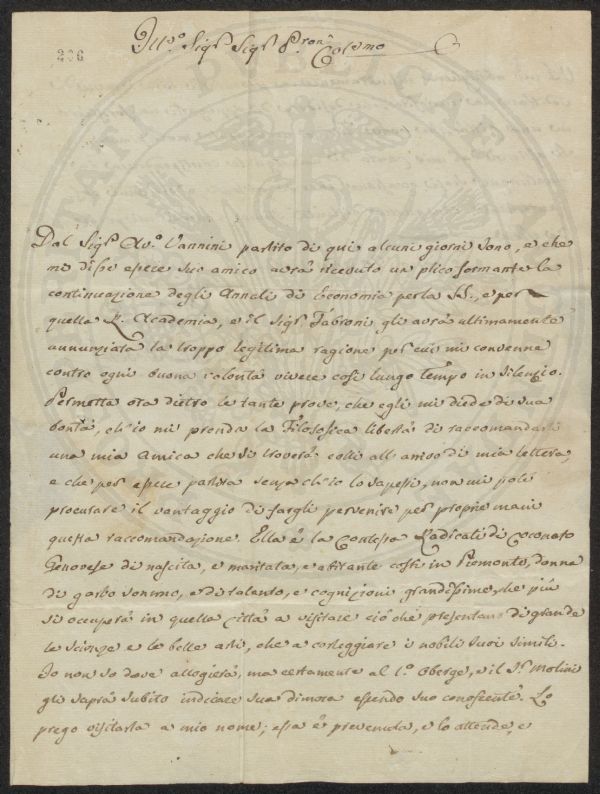 206
Ill.mo Sig.r Sig.r P.ron
Colmo
Dal Sig.r Av.o Vannini partito di qui alcuni giorni sono, e che
mi disse essere suo amico avrà ricevuto un plico formante la
continuazione degli Annali di Economia per la SS., e per
quella R. Academia, e il Sig.r Fabroni gli avrà ultimamente
annunziata la troppo legitima ragione per cui mi convenne
contro ogni buona volontà vivere così lungo tempo in silenzio.
Permetta ora dietro le tante prove, che egli mi diede di sua
bontà, ch'io mi prenda la Filosofica libertà di raccomandarle
una mia Amica che si troverà costì all'arrivo di mia lettera,
e che per essere partita senza ch'io lo sapessi, non mi potè
procurare il vantaggio di fargli pervenire per proprie mani
questa raccomandazione. Ella è la Contessa Radicati di Coconato
Genovese di nascita, e maritata, e abitante costì in Piemonte, donna
di garbo sommo, e di talento, e cognizioni grandissime, che più
si occuperà in quella città a visitare ciò che presentano di grande
le scienze e le belle arti, che a corteggiare i nobili suoi simili.
Io non so dove allogierà, ma certamente al 1.o Oberge, e il S.r Molini
gli saprà subito indicare sua dimora essendo suo conoscente. Lo
prego visitarla a mio nome; essa è prevenuta, e lo attende, e